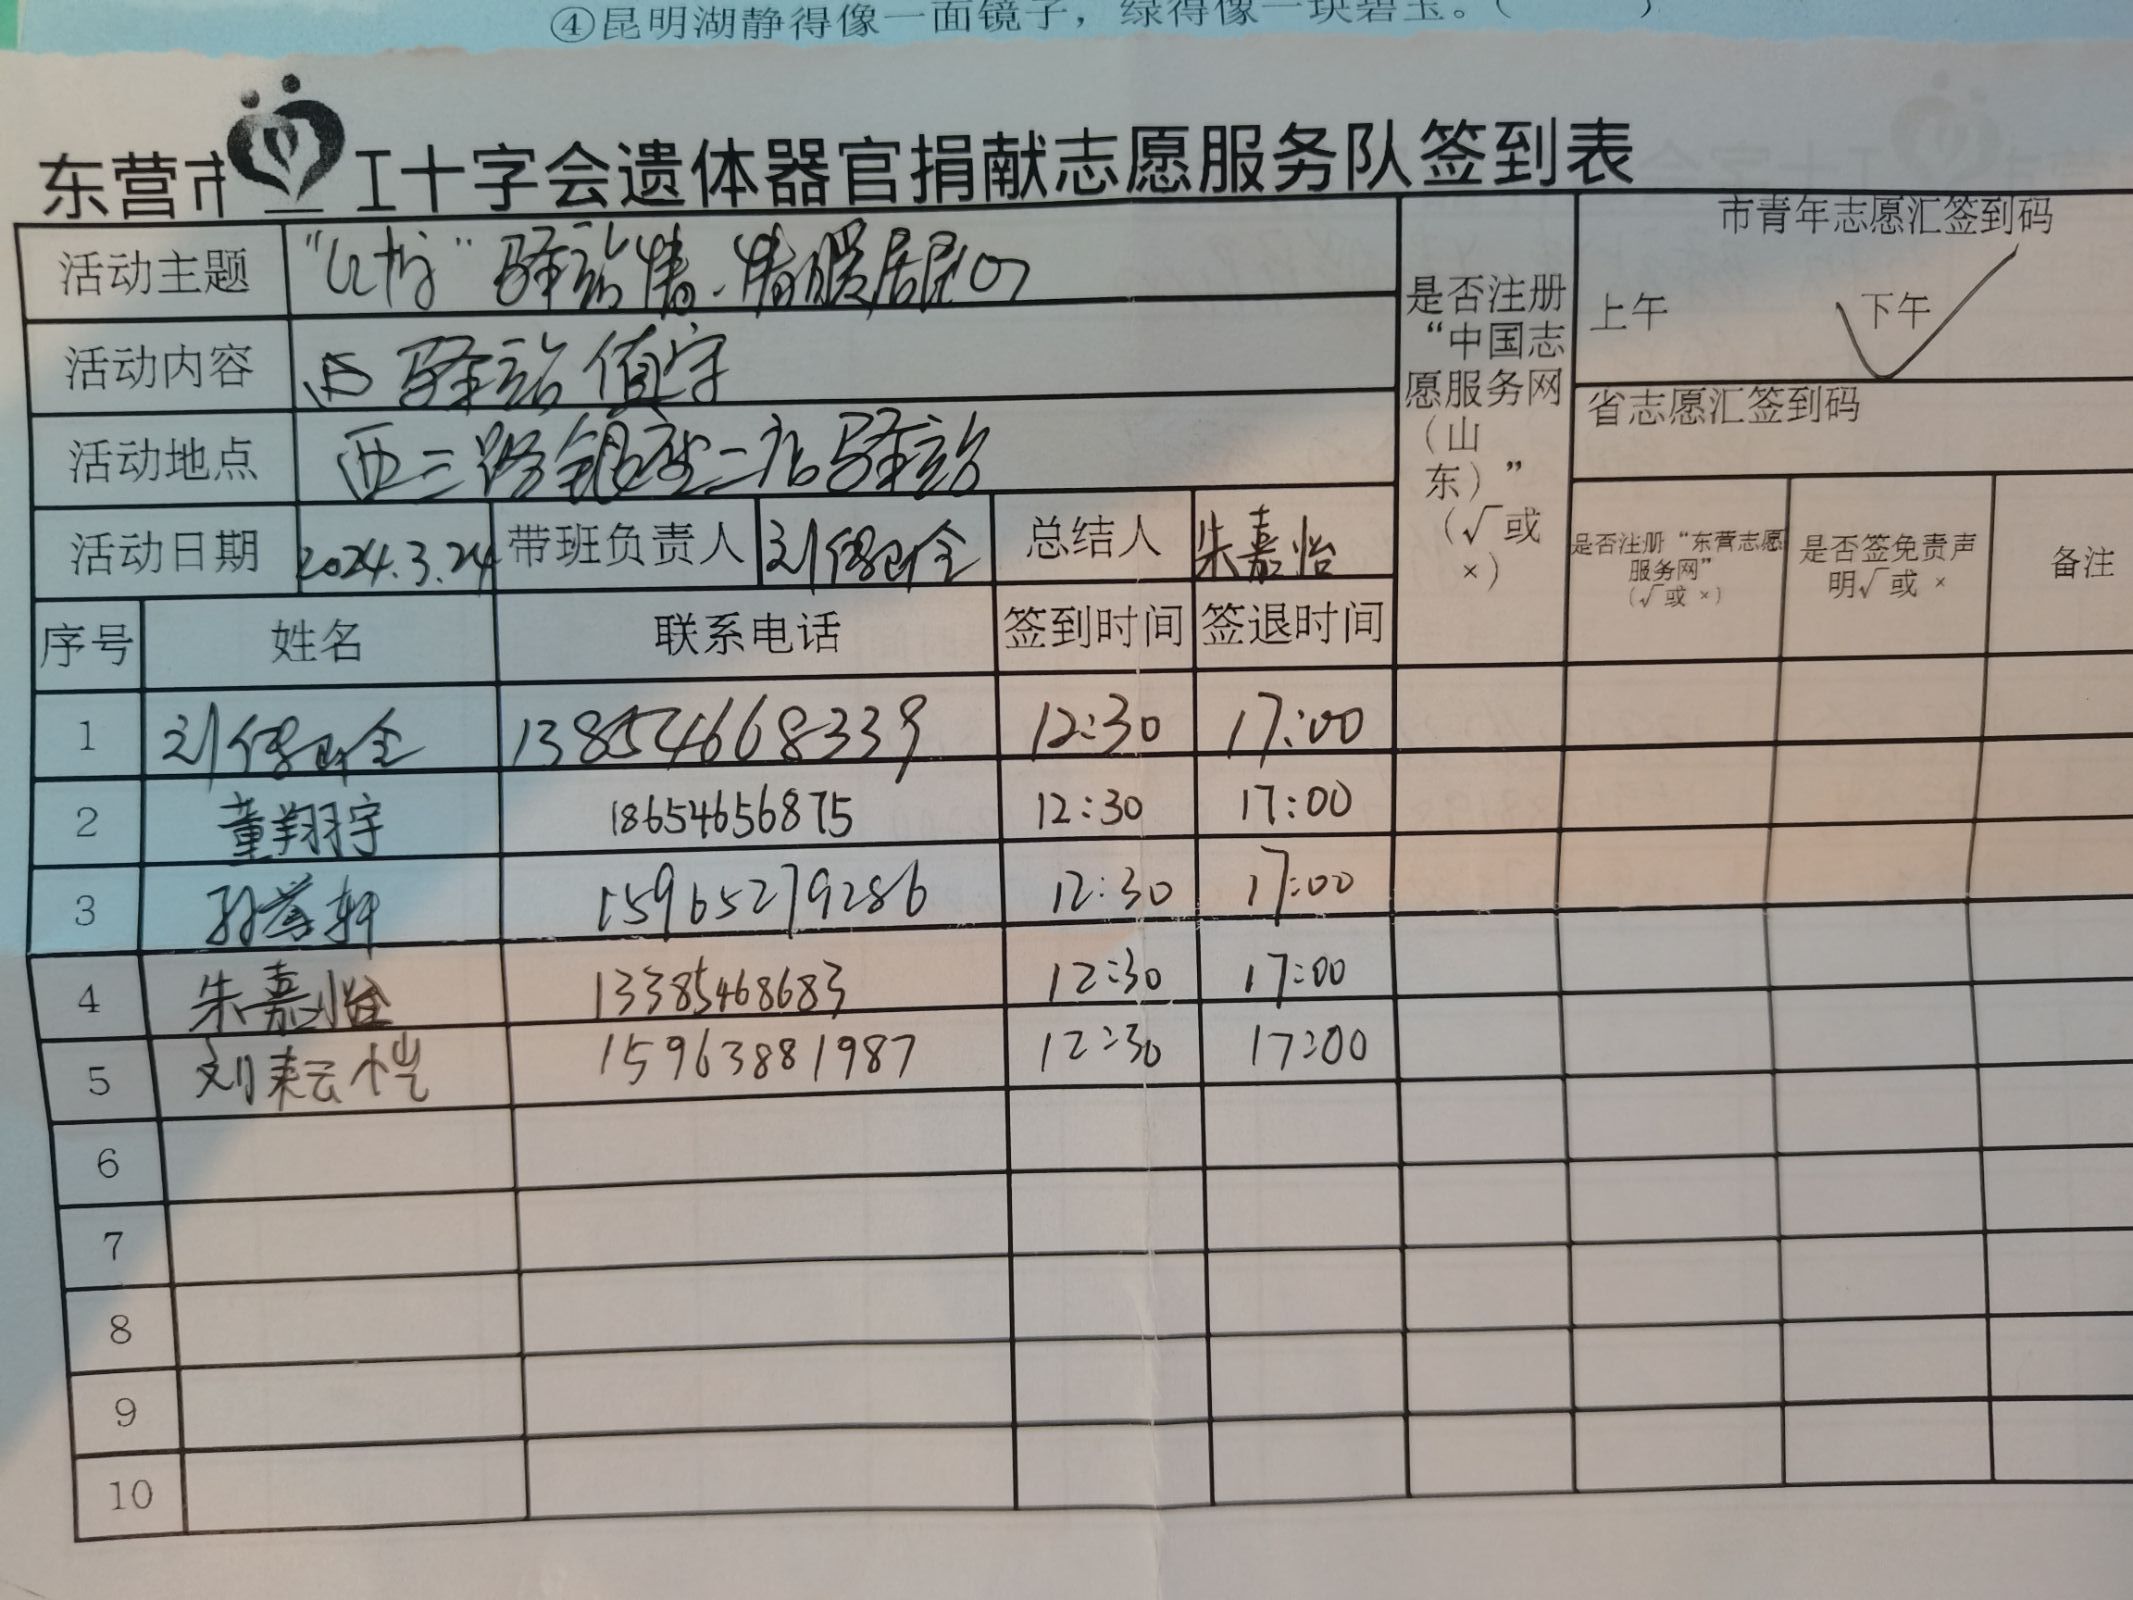 ④昆明湖静得像一面镜子，绿得像一块碧玉。（ ）
东营市 工十字会遗体器官捐献志愿服务队签到表
活动主题 驿站情.情暖居民心
活动内容 驿站值守
活动地点 西三路银座二店驿站
活动日期 2024.3.24 带班负责人 总结人 朱嘉怡
是否注册“中国志愿服务网（山东）”（√或×）
市青年志愿汇签到码
上午 下午
省志愿汇签到码
是否注册“东营志愿服务网”（√或×） 是否签免责声明√或× 备注
序号 姓名 联系电话 签到时间 签退时间
1 13854668339 12:30 17:00
2 董翔宇 18654656875 12:30 17:00
3 15965279286 12:30 17:00
4 朱嘉怡 13385468683 12:30 17:00
5 刘耘恺 15963881987 12:30 17:00
6
7
8
9
10